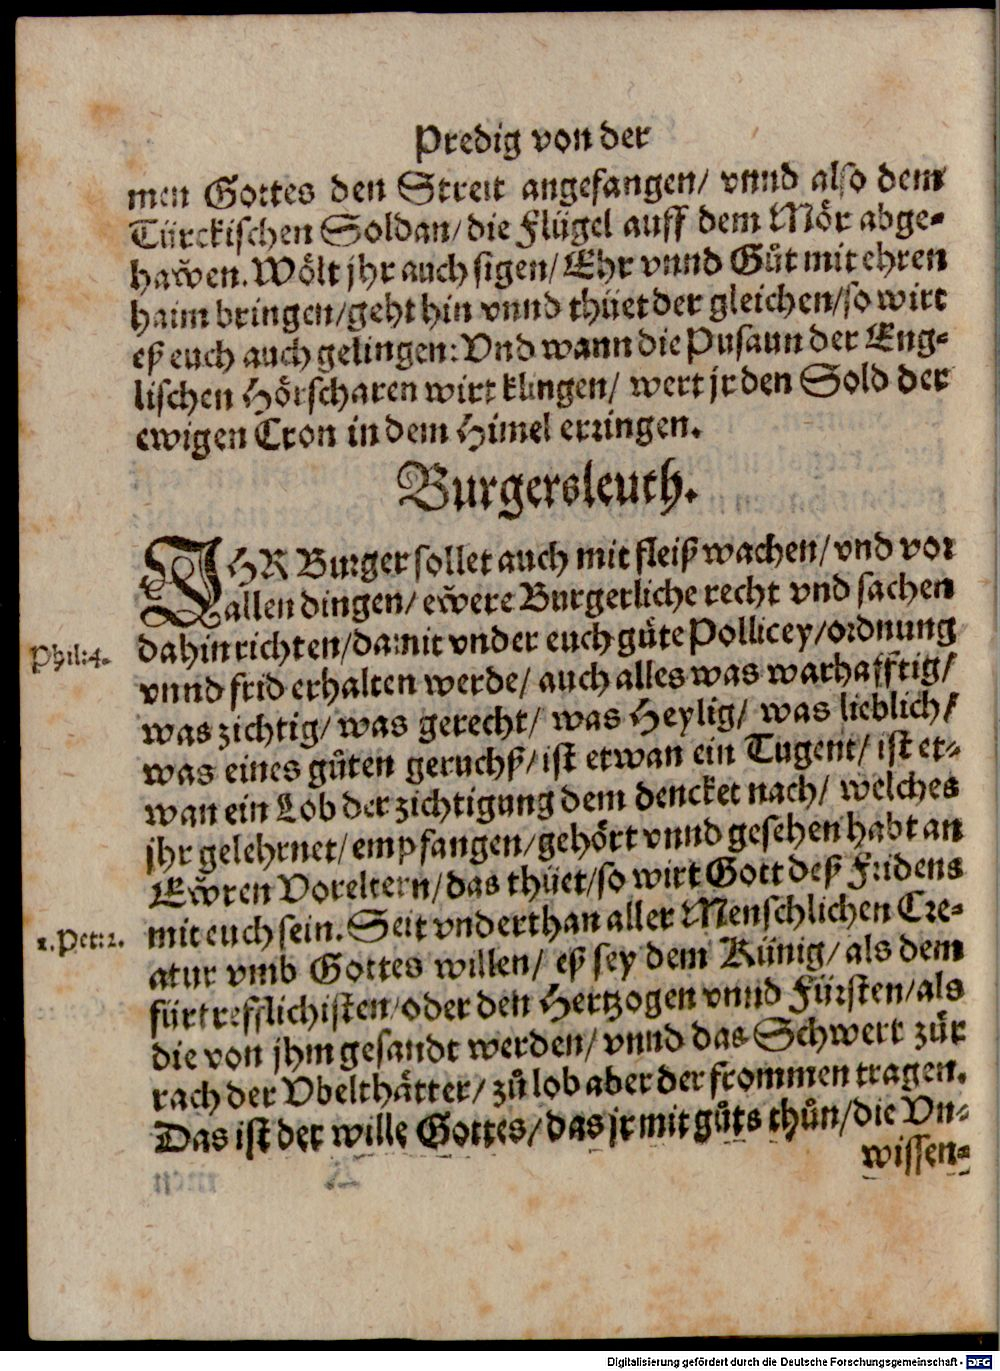 Predig von der
men Gottes den Streit angefangen/ vnnd also dem
Türckischen Soldan/ die Flügel auff dem Mör abge-
haẅen. Wölt jhr auch sigen/ Ehr vnnd Gůt mit ehren
haim bringen/ geht hin vnnd thüet der gleichen/ so wirt
eß euch auch gelingen: Vnd wann die Pusaun der Eng-
lischen Hörscharen wirt klingen/ wert jr den Sold der
ewigen Cron in dem Himel erringen.
Burgersleuth.
IHR Burger sollet auch mit fleiß wachen/ vnd vor
allen dingen/ eẅere Burgerliche recht vnd sachen
dahin richten/ damit vnder euch gůte Pollicey/ ordnung
Phil:4.
vnnd frid erhalten werde/ auch alles was warhafftig/
was zichtig/ was gerecht/ was Heylig/ was lieblich/
was eines gůten geruchß/ ist etwan ein Tugent/ ist et-
wan ein Lob der zichtigung dem dencket nach/ welches
jhr gelehrnet/ empfangen/ gehört vnnd gesehen habt an
Eẅren Voreltern/ das thüet/ so wirt Gott deß Fridens
mit euch sein. Seit vnderthan aller Menschlichen Cre-
1. Pet:2.
atur vmb Gottes willen/ eß sey dem Künig/ als dem
fürtrefflichisten/ oder den Hertzogen vnnd Fürsten/ als
die von jhm gesandt werden/ vnnd das Schwert zůr
rach der Vbelthätter/ zů lob aber der frommen tragen.
Das ist der wille Gottes/ das jr mit gůts thůn/ die Vn-
wissen-
Digitalisierung gefördert durch die Deutsche Forschungsgemeinschaft - DFG